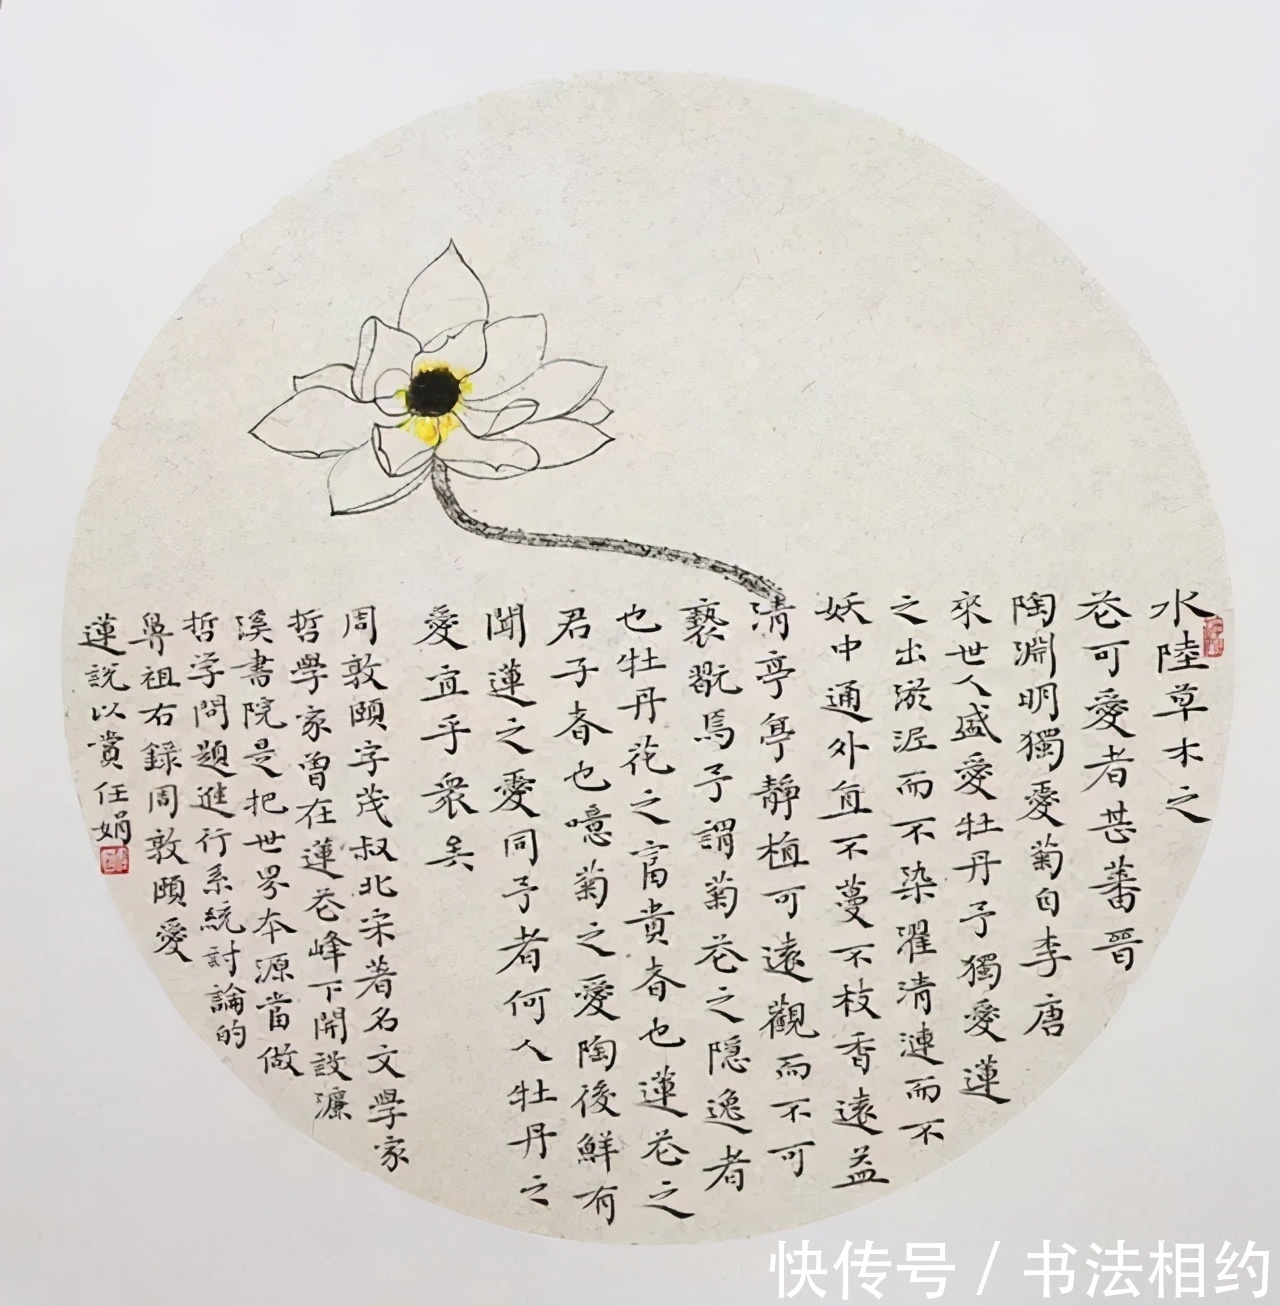 水陸草木之
花可愛者甚蕃晉
陶淵明獨愛菊自李唐
來世人盛愛牡丹予獨愛蓮
之出淤泥而不染濯清漣而不
妖中通外直不蔓不枝香遠益
清亭亭靜植可遠觀而不可
褻翫焉予謂菊花之隐逸者
也牡丹花之富貴者也蓮花之
君子者也噫菊之愛陶後鮮有
聞蓮之愛同予者何人牡丹之
愛宜乎衆矣
周敦頤字茂叔北宋著名文學家
哲學家曾在蓮花峰下開設濂
溪書院是把世界本源當做
哲学問題進行系統討論的
鼻祖右錄周敦頤愛
蓮說以賞任娟
快传号 / 书法相约